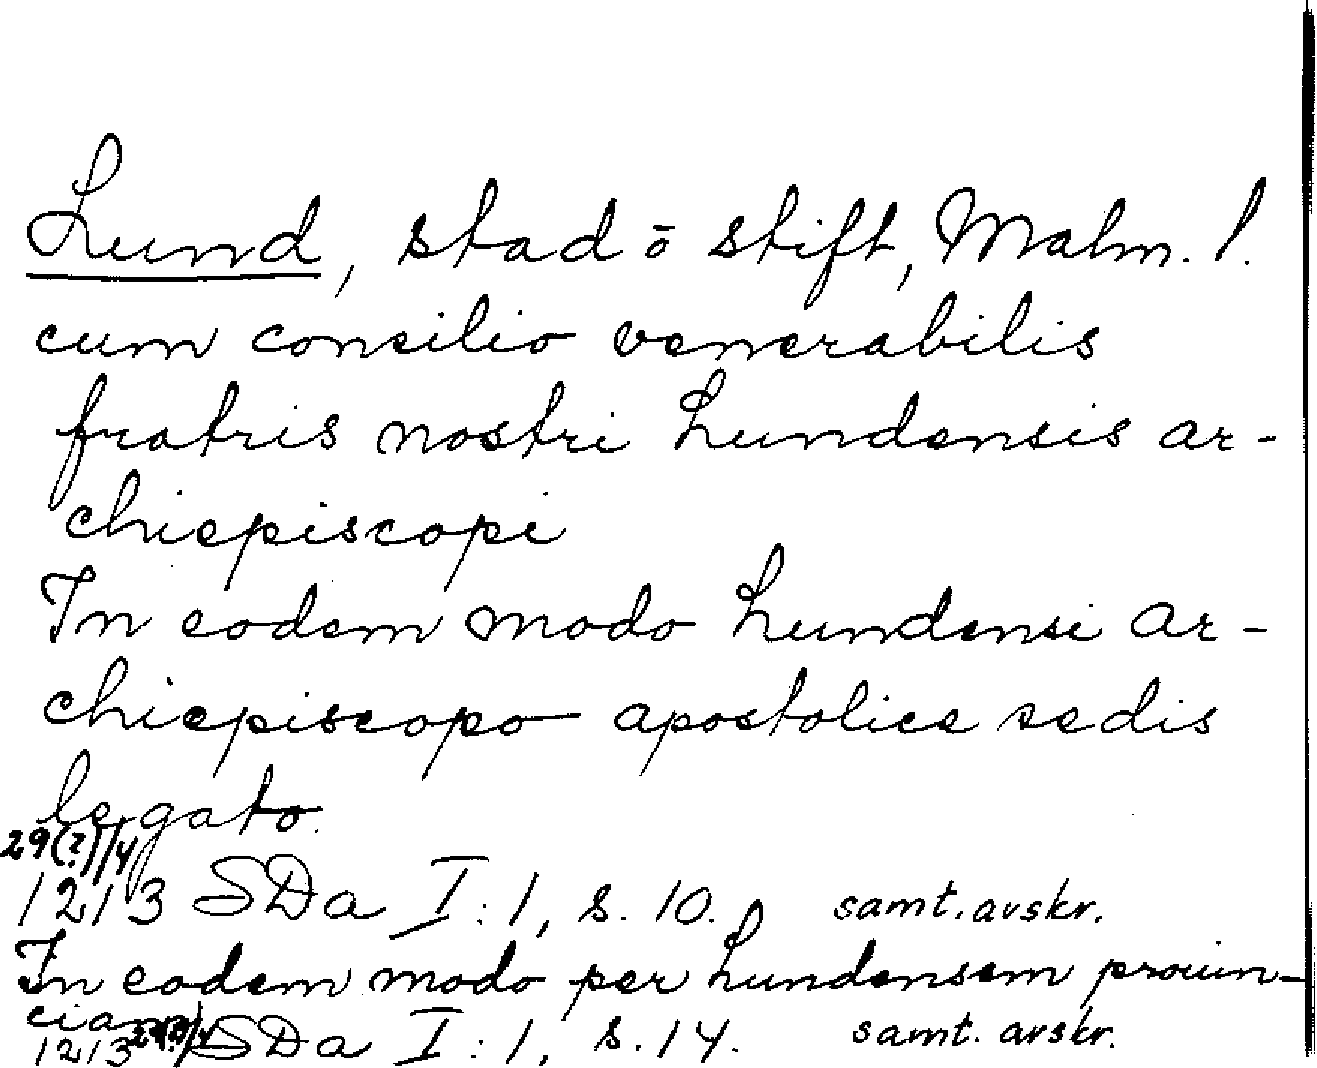 Lund, stad ō stift, Malm. l.
cum consilio venerabilis
fratris nostri Lundensis ar-
chiepiscopi
In eodem modo Lundensi ar-
chiepiscopo apostolice sedis
legato.
29(?)/4
1213 SDa I:1, s. 10. samt. avskr.
In eodem modo per Lundensem prouin-
ciam
1213 SDa I:1, s. 14. samt. avskr.